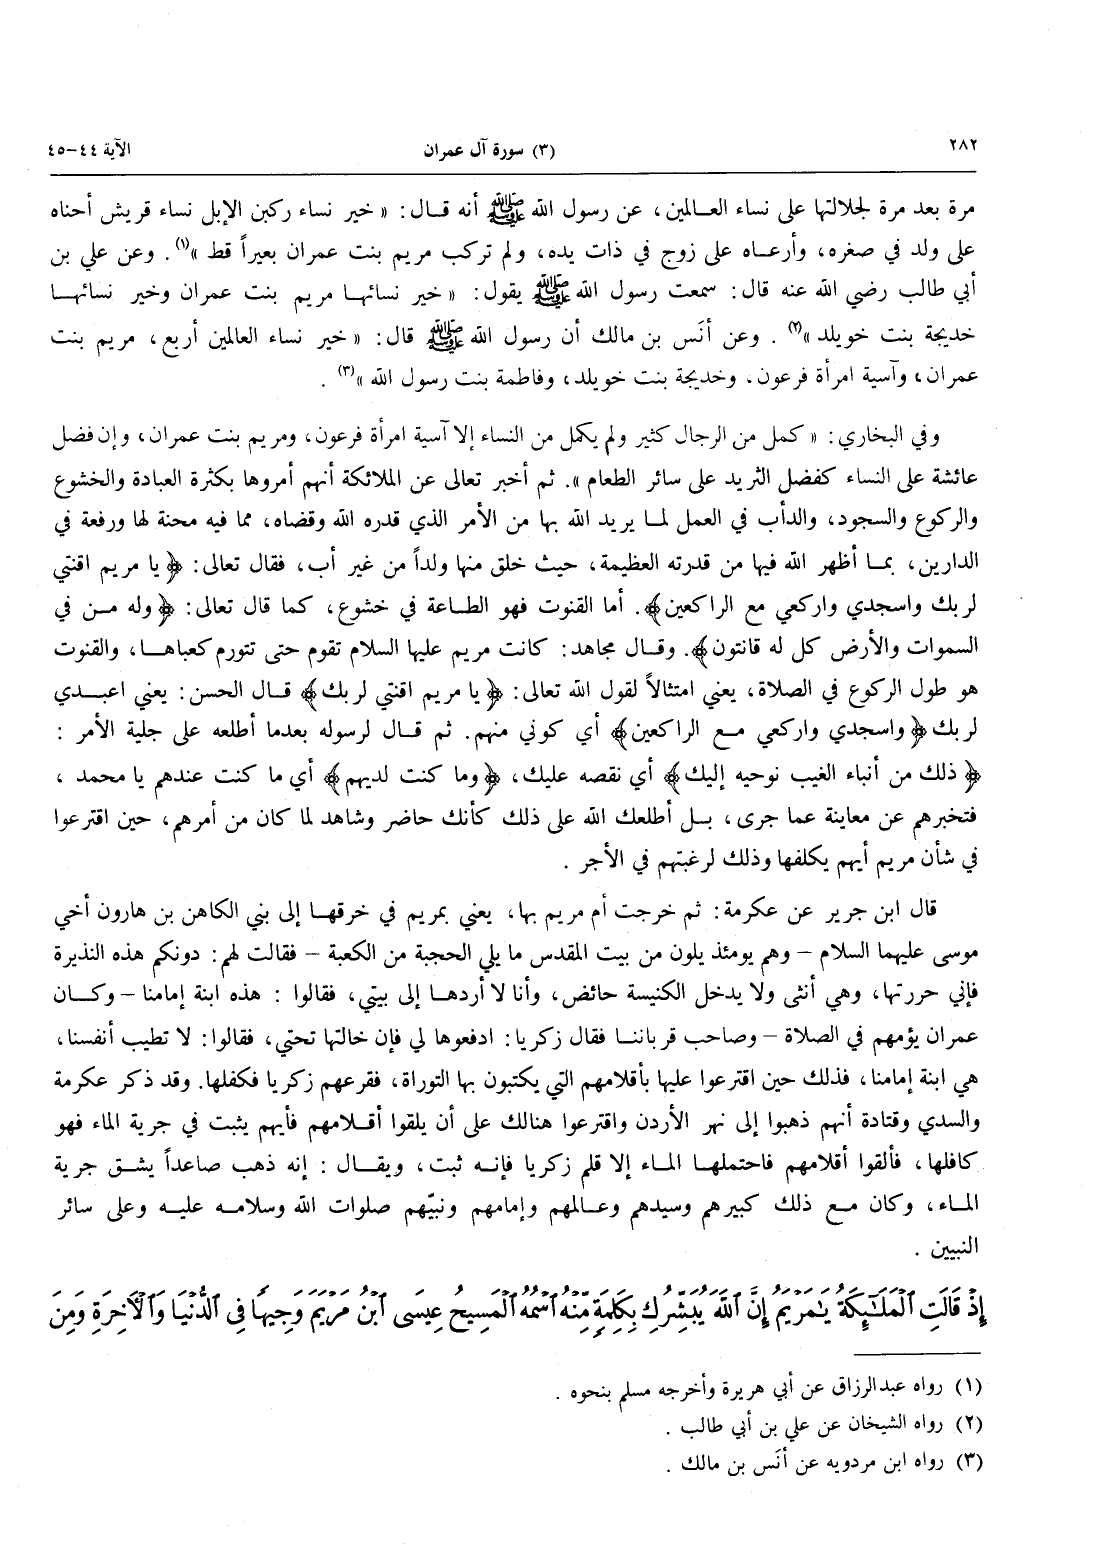 ٢٨٢ (٣) سورة آل عمران الآية ٤٤-٤٥
مرة بعد مرة لجلالتها على نساء العالمين، عن رسول الله ﷺ أنه قال: « خير نساء ركبن الإبل نساء قريش أحناه
على ولد في صغره، وأرعاه على زوج في ذات يده، ولم تركب مريم بنت عمران بعيراً قط »(١). وعن علي بن
أبي طالب رضي الله عنه قال: سمعت رسول الله ﷺ يقول: « خير نسائها مريم بنت عمران وخير نسائها
خديجة بنت خويلد »(٢) . وعن أنَس بن مالك أن رسول الله ﷺ قال: « خير نساء العالمين أربع، مريم بنت
عمران، وآسية امرأة فرعون. وخديجة بنت خويلد، وفاطمة بنت رسول الله »(٣) .
وفي البخاري: « كمل من الرجال كثير ولم يكمل من النساء إلا آسية امرأة فرعون، ومريم بنت عمران، وإن فضل
عائشة على النساء كفضل الثريد على سائر الطعام ». ثم أخبر تعالى عن الملائكة أنهم أمروها بكثرة العبادة والخشوع
والركوع والسجود، والدأب في العمل لما يريد الله بها من الأمر الذي قدره الله وقضاه، مما فيه محنة لها ورفعة في
الدارين، بما أظهر الله فيها من قدرته العظيمة، حيث خلق منها ولداً من غير أب، فقال تعالى: ﴿ يا مريم اقنتي
لربك واسجدي واركعي مع الراكعين﴾. أما القنوت فهو الطاعة في خشوع، كما قال تعالى: ﴿وله من في
السموات والأرض كل له قانتون﴾. وقال مجاهد: كانت مريم عليها السلام تقوم حتى تتورم كعباها، والقنوت
هو طول الركوع في الصلاة، يعني امتثالاً لقول الله تعالى: ﴿ يا مريم اقنتي لربك﴾ قال الحسن: يعني اعبدي
لربك ﴿واسجدي واركعي مع الراكعين﴾ أي كوني منهم. ثم قال لرسوله بعدما أطلعه على جلية الأمر :
﴿ ذلك من أنباء الغيب نوحيه إليك﴾ أي نقصه عليك، ﴿وما كنت لديهم﴾ أي ما كنت عندهم يا محمد ،
فتخبرهم عن معاينة عما جرى، بل أطلعك الله على ذلك كأنك حاضر وشاهد لما كان من أمرهم، حين اقترعوا
في شأن مريم أيهم يكلفها وذلك لرغبتهم في الأجر .
قال ابن جرير عن عكرمة: ثم خرجت أم مريم بها، يعني بمريم في خرقها إلى بني الكاهن بن هارون أخي
موسى عليهما السلام – وهم يومئذ يلون من بيت المقدس ما يلي الحجبة من الكعبة – فقالت لهم: دونكم هذه النذيرة
فإني حررتها، وهي أنثى ولا يدخل الكنيسة حائض، وأنا لا أردها إلى بيتي، فقالوا : هذه ابنة إمامنا – وكان
عمران يؤمهم في الصلاة – وصاحب قرباننا فقال زكريا: ادفعوها لي فإن خالتها تحتي، فقالوا: لا تطيب أنفسنا،
هي ابنة إمامنا، فذلك حين اقترعوا عليها بأقلامهم التي يكتبون بها التوراة، فقرعهم زكريا فكفلها. وقد ذكر عكرمة
والسدي وقتادة أنهم ذهبوا إلى نهر الأردن واقترعوا هنالك على أن يلقوا أقلامهم فأيهم يثبت في جرية الماء فهو
كافلها، فألقوا أقلامهم فاحتملها الماء إلا قلم زكريا فإنه ثبت، ويقال : إنه ذهب صاعداً يشق جرية
الماء، وكان مع ذلك كبيرهم وسيدهم وعالمهم وإمامهم ونبيّهم صلوات الله وسلامه عليه وعلى سائر
النبيين .
إِذْ قَالَتِ ٱلْمَلَـٰٓئِكَةُ يَـٰمَرْيَمُ إِنَّ ٱللَّهَ يُبَشِّرُكِ بِكَلِمَةٍ مِّنْهُ ٱسْمُهُ ٱلْمَسِيحُ عِيسَى ٱبْنُ مَرْيَمَ وَجِيهًا فِى ٱلدُّنْيَا وَٱلْأَخِرَةِ وَمِنَ
(١) رواه عبدالرزاق عن أبي هريرة وأخرجه مسلم بنحوه .
(٢) رواه الشيخان عن علي بن أبي طالب .
(٣) رواه ابن مردويه عن أنَس بن مالك .